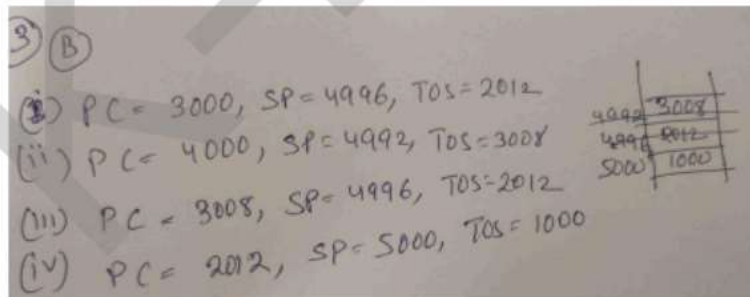 3 B
(i) PC = 3000, SP = 4996, TOS = 2012
(ii) PC = 4000, SP = 4992, TOS = 3008
(iii) PC = 3008, SP = 4996, TOS = 2012
(iv) PC = 2012, SP = 5000, TOS = 1000
4992 3008
4996 2012
5000 1000